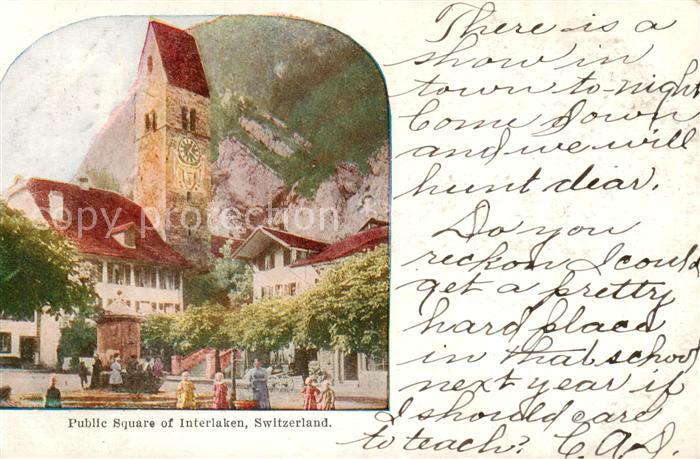 There is a
show in
town to-night
Come down
and we will
hunt dear.
Do you
reckon I could
get a pretty
hard place
in that school
next year if
I should care
to teach? C.A.S.
copy proof
copy proof
Public Square of Interlaken, Switzerland.